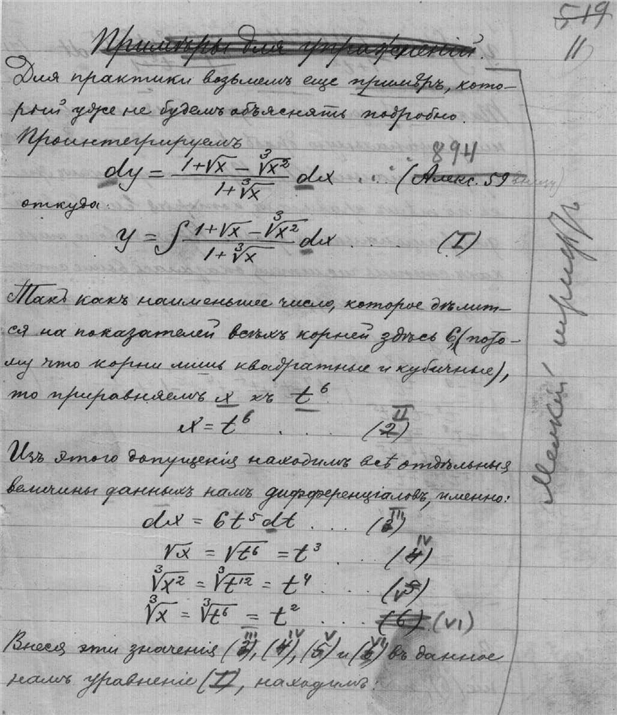 519
11
Примѣры для упражненій.
Для практики возьмемъ еще примѣръ, кото-
рый уже не будемъ объяснять подробно.
Проинтегрируемъ
894
dy = (1+√x − ∛x²)/(1+∛x) dx . . . (Алекс. 59
откуда
y = ∫ (1+√x − ∛x²)/(1+∛x) dx (I)
Такъ какъ наименьшее число, которое дѣлит-
ся на показателей всѣхъ корней здѣсь 6 (пото-
му что корни лишь квадратные и кубичные),
то приравняемъ x къ t⁶
x = t⁶ . . . (2) II
Изъ этого допущенія находимъ всѣ отдѣльныя
величины данныхъ намъ дифференціаловъ, именно:
dx = 6t⁵dt . . . (3) III
√x = √t⁶ = t³ . . . (4) IV
∛x² = ∛t¹² = t⁴ . . . (V)
∛x = ∛t⁶ = t² . . . (6) (VI)
Внеся эти значенія (3) III, (4) IV, (5) и (6) VI въ данное
намъ уравненіе (I), находимъ:
Мелкій шрифтъ